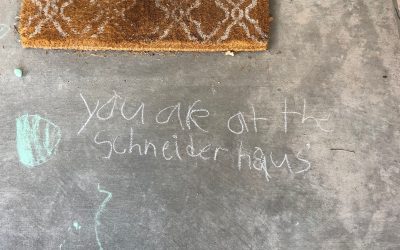 you are at the
schneider haus